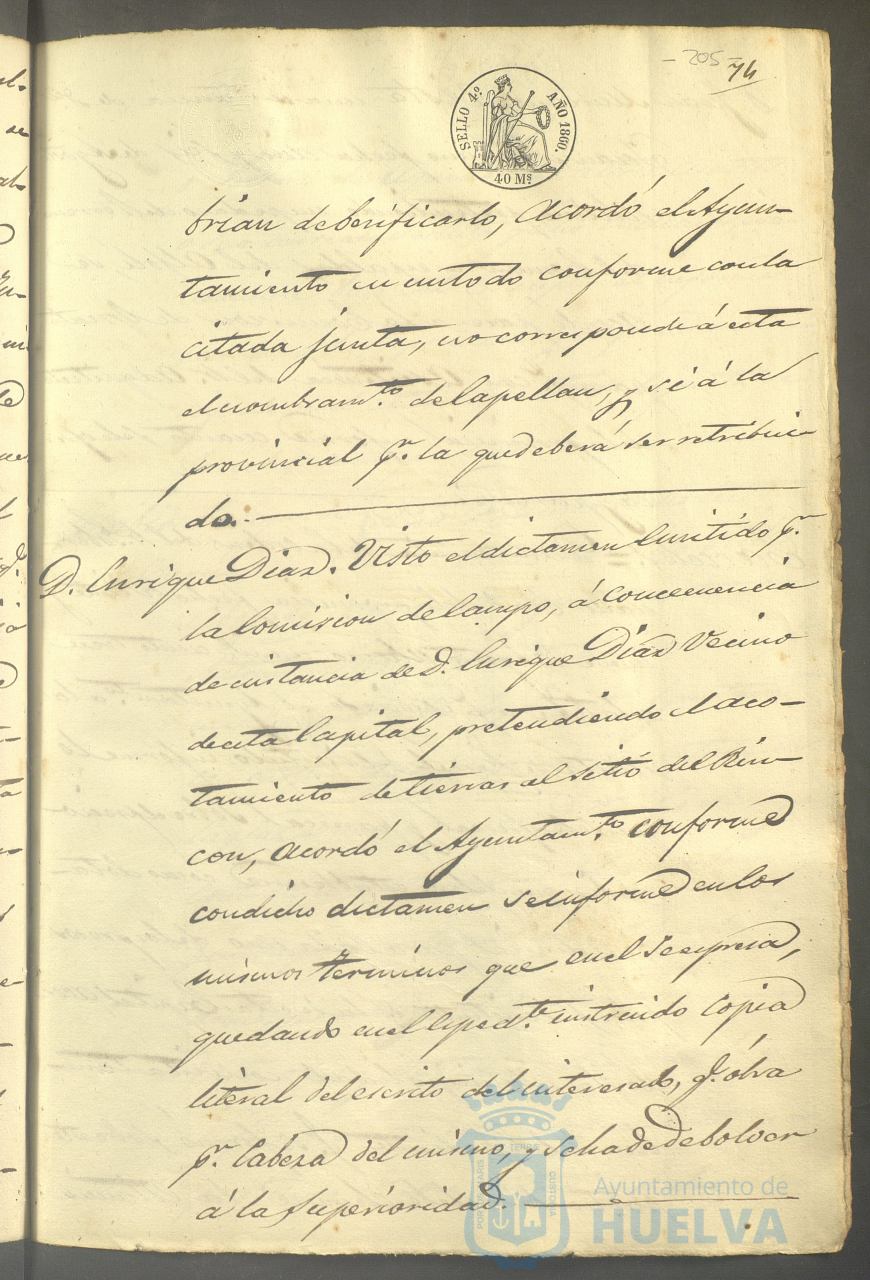 - 205 -
74
SELLO 4º AÑO 1860.
40 Ms.
brian deberificarlo, acordó el Ayun-
tamiento en untodo conforme conla
citada Junta, nocorresponde á esta
el nombramto. deCapellan, y si á la
provincial pr. la quedeberá ser retribui-
do.
D. Enrique Diaz. Visto el dictamen Emitido pr.
la Comision de Campo, á concecuencia
de instancia de D. Enrique Diaz Vecino
deesta Capital, pretendiendo el aco-
tamiento de tierras al sitio del Rin-
con, acordó el Ayuntamto. conforme
condicho dictamen seinforme en los
mismos terminos que en el se espresa,
quedando en el Espedte. instruido Copia
literal del escrito del interesado, q. óbra
pr. Cabeza del mismo, y se ha de debolver
á la Superioridad.
PORTUS MARIS ET TERRAE CUSTODIA
Ayuntamiento de
HUELVA